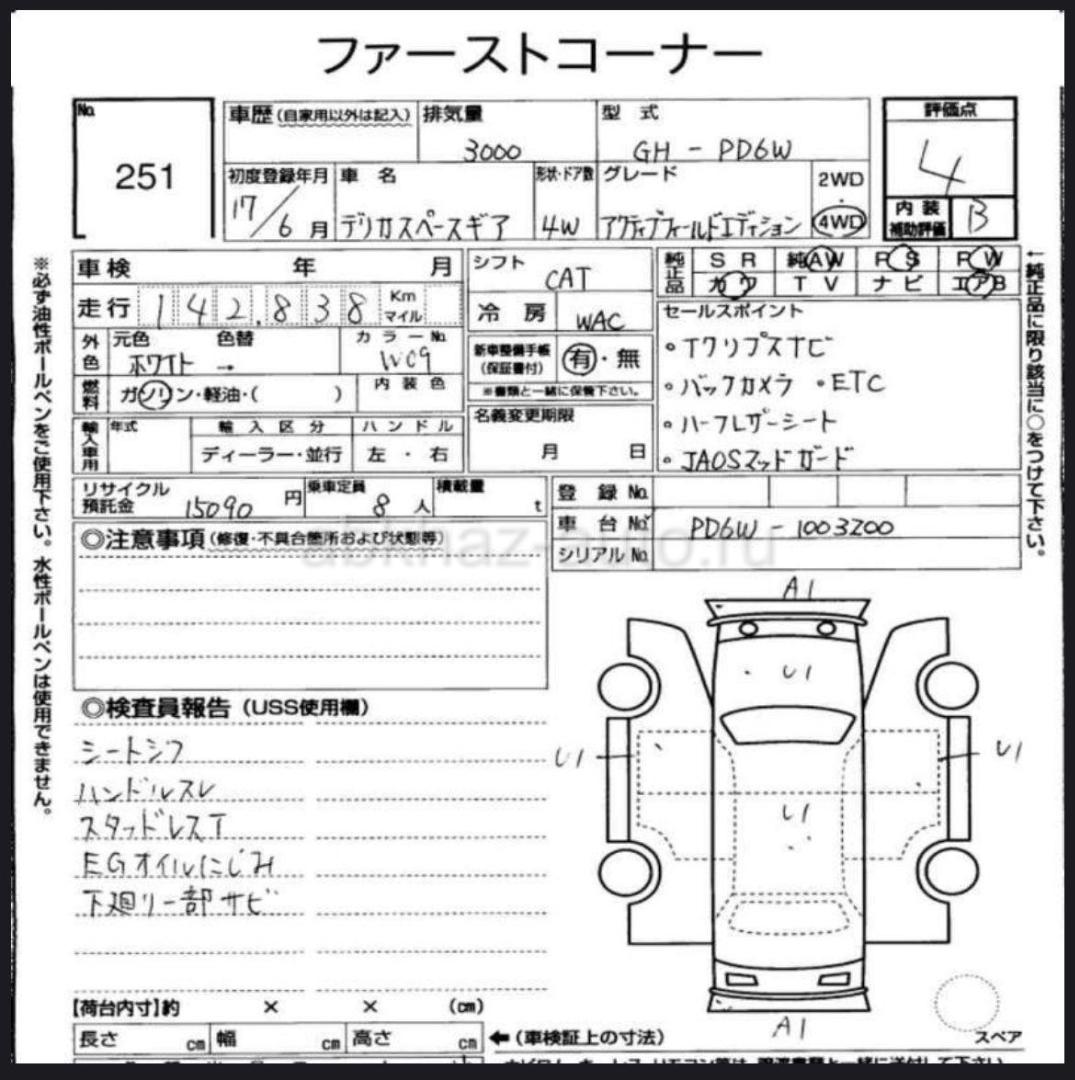 ファーストコーナー
No. 251
車歴 (自家用以外は記入)
排気量 3000
型 式 GH - PD6W
評価点 4
初度登録年月 17/6月
車 名 デリカスペースギア
形状・ドア数 4W
グレード アクティブフィールドエディション
2WD
・
4WD
内 装
補助評価 B
車検 年 月
走行 142.838 Km
マイル
シフト CAT
冷 房 WAC
純正品 SR 純AW PS PW
カワ TV ナビ エアB
外色 元色 ホワイト → 色替 カラーNo. W09
燃料 ガソリン・軽油・( )
内 装 色
新車整備手帳
(保証書付) 有・無
※書類と一緒に保管下さい。
セールスポイント
・Tクリプスナビ
・バックカメラ ・ETC
・ハーフレザーシート
・JAOSマッドガード
輸入車用 年式 輸入区分 ハンドル
ディーラー・並行 左・右
名義変更期限
月 日
リサイクル
預託金 15090 円
乗車定員 8 人
積載量 t
登 録 No.
車 台 No. PD6W - 1003200
シリアル No.
abkhaz-auto.ru
◎注意事項 (修復・不具合箇所および状態等)
◎検査員報告 (USS使用欄)
シートシワ
ハンドルスレ
スタッドレスT
EGオイルにじみ
下廻リ一部サビ
A1
U1
U1
U1
U1
A1
スペア
【荷台内寸】約 × × (cm)
長さ cm 幅 cm 高さ cm
←(車検証上の寸法)
※必ず油性ボールペンをご使用下さい。水性ボールペンは使用できません。
←純正品に限り該当に○をつけて下さい。